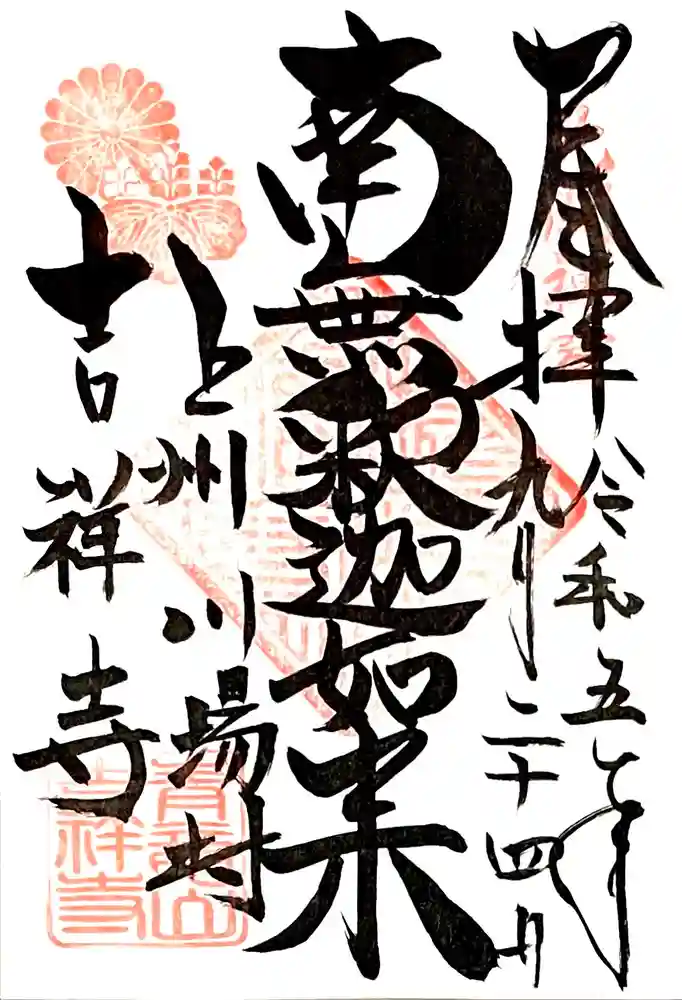 奉拝
令和五年
九月二十四日
南無釈迦如来
上州川場村
吉祥寺
青龍山
吉祥寺